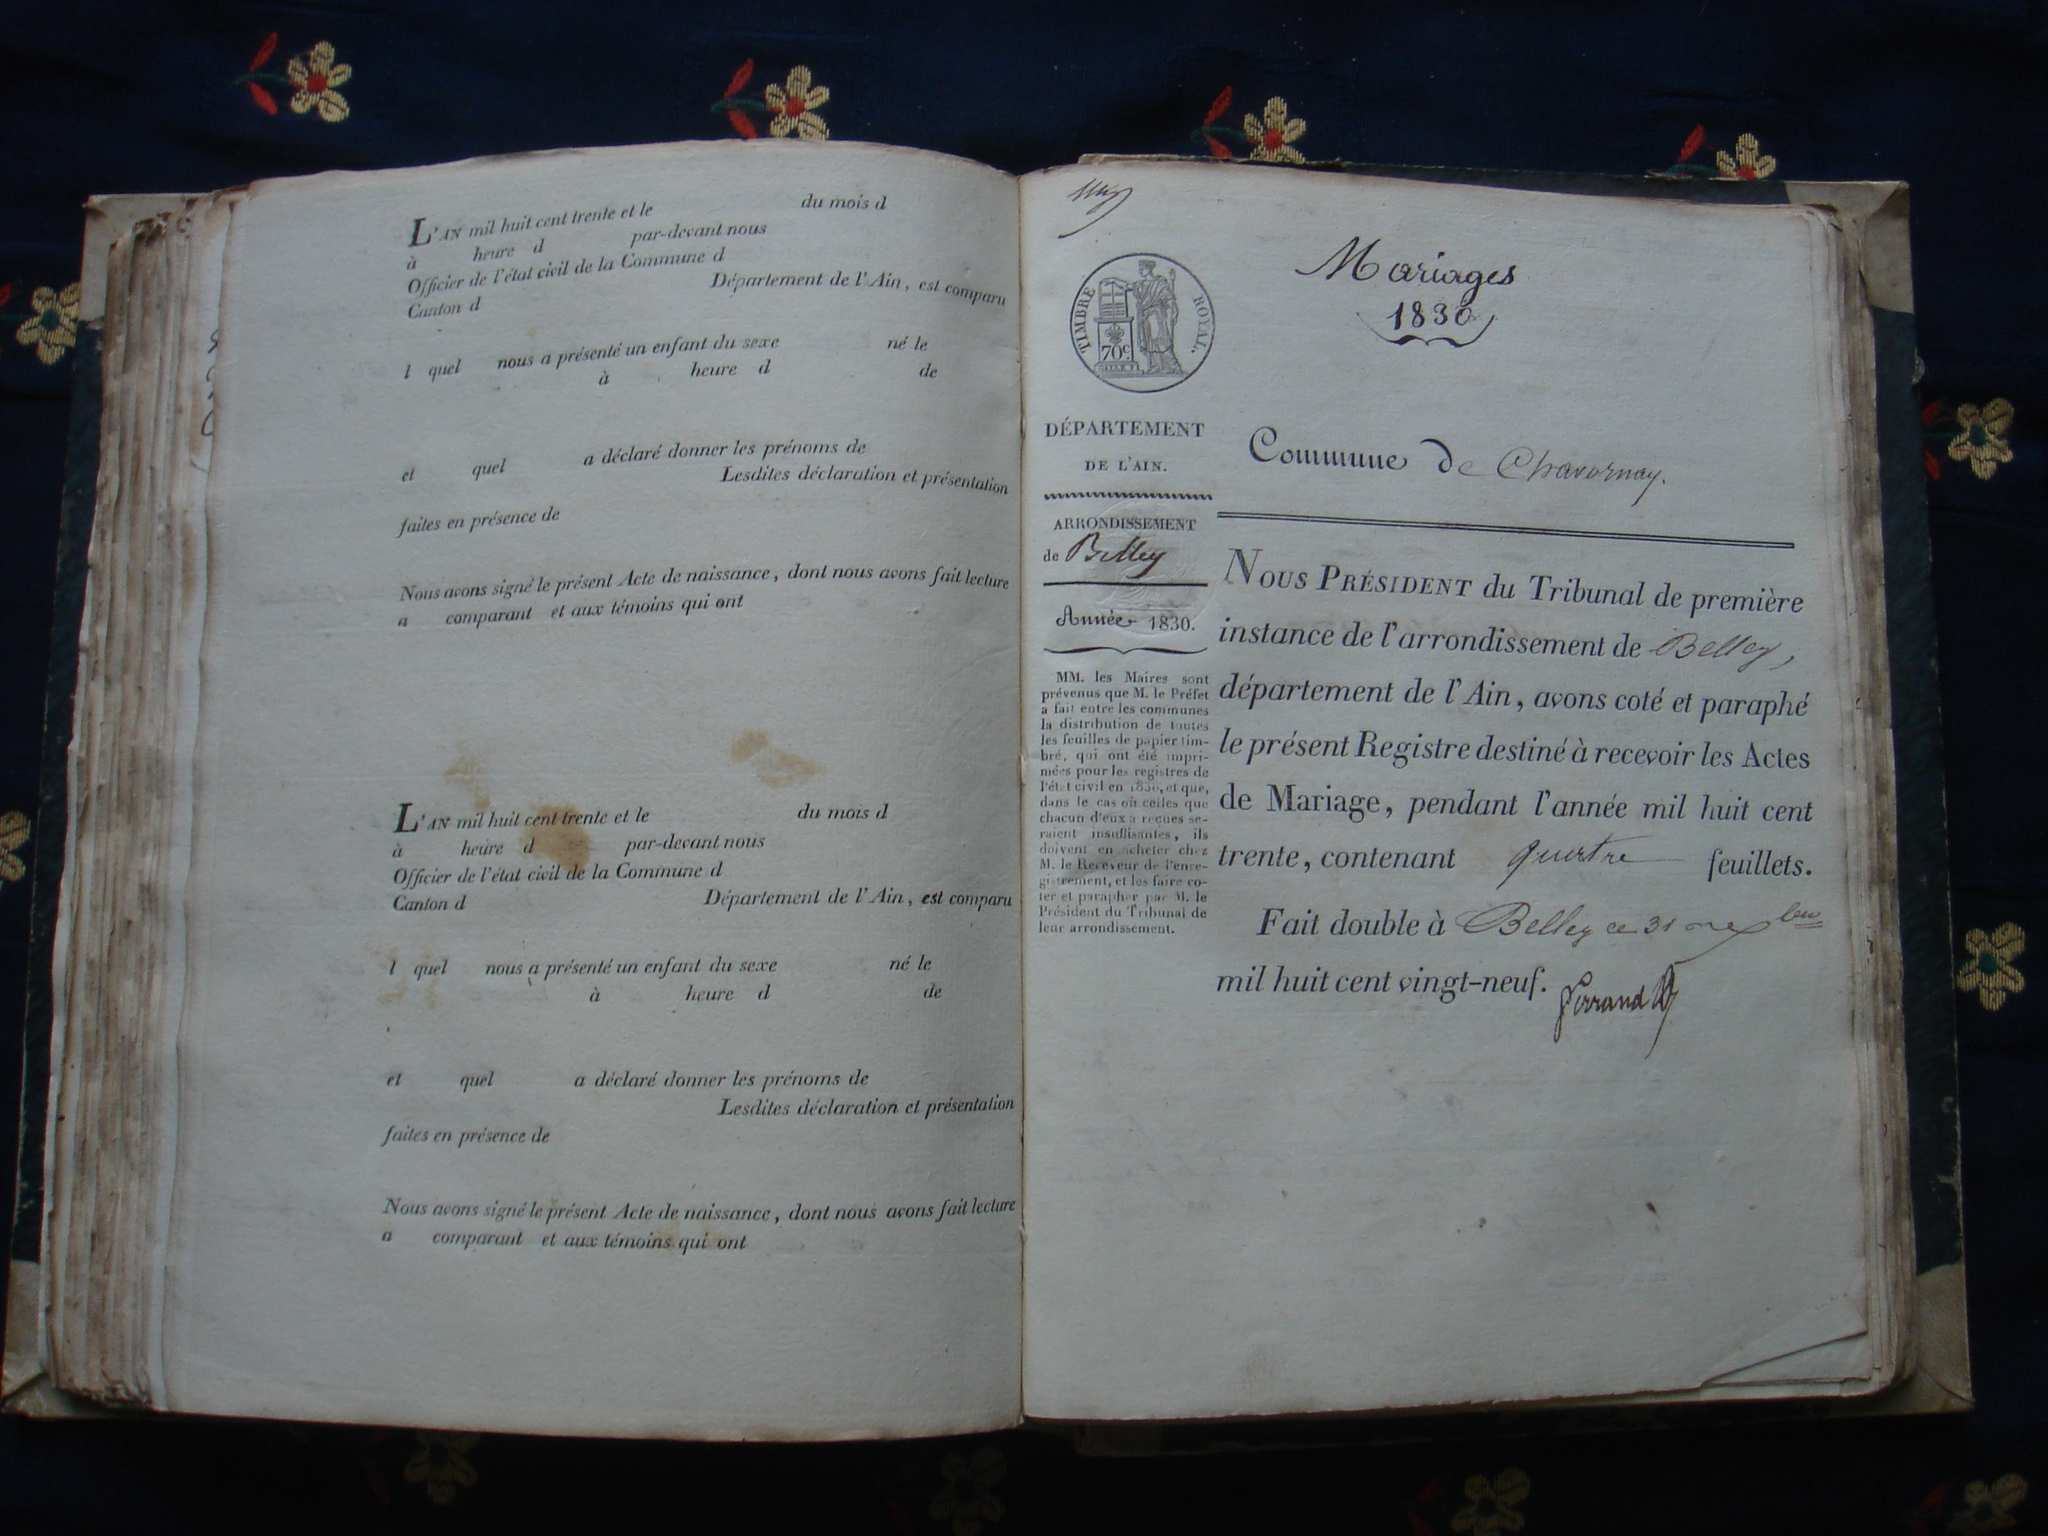 L'AN mil huit cent trente et le du mois d
à heure d par-devant nous
Officier de l'état civil de la Commune d
Canton d Département de l'Ain, est comparu
l quel nous a présenté un enfant du sexe né le
à heure d de
et quel a déclaré donner les prénoms de
Lesdites déclaration et présentation
faites en présence de
Nous avons signé le présent Acte de naissance, dont nous avons fait lecture
a comparant et aux témoins qui ont
L'AN mil huit cent trente et le du mois d
à heure d par-devant nous
Officier de l'état civil de la Commune d
Canton d Département de l'Ain, est comparu
l quel nous a présenté un enfant du sexe né le
à heure d de
et quel a déclaré donner les prénoms de
Lesdites déclaration et présentation
faites en présence de
Nous avons signé le présent Acte de naissance, dont nous avons fait lecture
a comparant et aux témoins qui ont
TIMBRE ROYAL.
70c
Mariages
1830
DÉPARTEMENT
DE L'AIN.
ARRONDISSEMENT
de Belley
Année 1830.
MM. les Maires sont
prévenus que M. le Préfet
a fait entre les communes
la distribution de toutes
les feuilles de papier tim-
bré, qui ont été impri-
mées pour les registres de
l'état civil en 1830, et que,
dans le cas où celles que
chacun d'eux a reçues se-
raient insuffisantes, ils
doivent en acheter chez
M. le Receveur de l'enre-
gistrement, et les faire co-
ter et parapher par M. le
Président du Tribunal de
leur arrondissement.
Commune de Chavornay.
NOUS PRÉSIDENT du Tribunal de première
instance de l'arrondissement de Belley,
département de l'Ain, avons coté et paraphé
le présent Registre destiné à recevoir les Actes
de Mariage, pendant l'année mil huit cent
trente, contenant quatre feuillets.
Fait double à Belley ce 31
mil huit cent vingt-neuf.
Ferrand